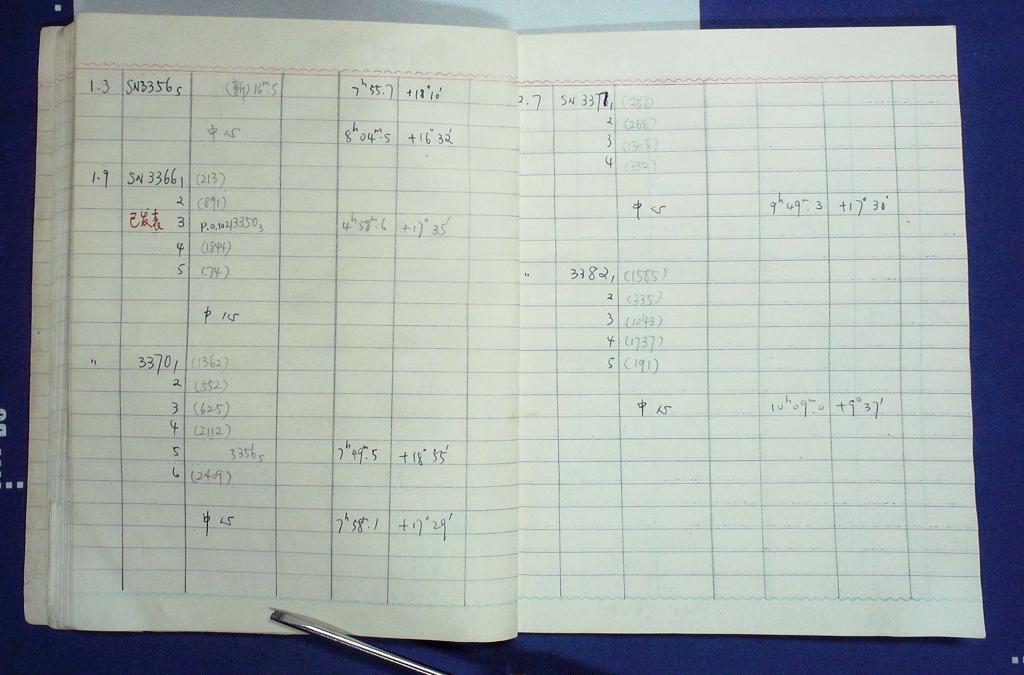 1.3 SN3356₅ (新)16ᵐ.5 7ʰ55.7 +18°10′
中心 8ʰ04ᵐ.5 +16°32′
1.9 SN3366₁ (213)
2 (891)
已发表 3 P.O.10213350₃ 4ʰ58ᵐ.6 +17°35′
4 (1844)
5 (74)
中心
" 3370₁ (1362)
2 (552)
3 (625)
4 (2112)
5 3356₅ 7ʰ49ᵐ.5 +18°55′
6 (2409)
中心 7ʰ58ᵐ.1 +17°29′
2.7 SN 3371₁
2 (268)
3
4 (332)
中心 9ʰ49ᵐ.3
" 3382₁ (1585)
2 (335)
3 (1043)
4 (1737)
5 (191)
中心 10ʰ09ᵐ.0 +9°37′